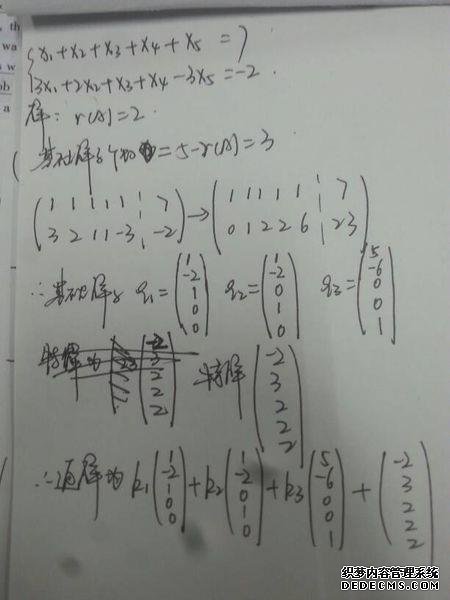 x₁+x₂+x₃+x₄+x₅=7
3x₁+2x₂+x₃+x₄-3x₅=-2.
解: r(A)=2.
基础解系个数=5-r(A)=3
(1 1 1 1 1 | 7; 3 2 1 1 -3 | -2) → (1 1 1 1 1 | 7; 0 1 2 2 6 | 23)
∴基础解系 q₁=(1 -2 1 0 0) q₂=(1 -2 0 1 0) q₃=(5 -6 0 0 1)
特解(-2 3 2 2 2)
∴通解为 k₁(1 -2 1 0 0)+k₂(1 -2 0 1 0)+k₃(5 -6 0 0 1)+(-2 3 2 2 2)
织梦内容管理系统
DEDECMS.COM